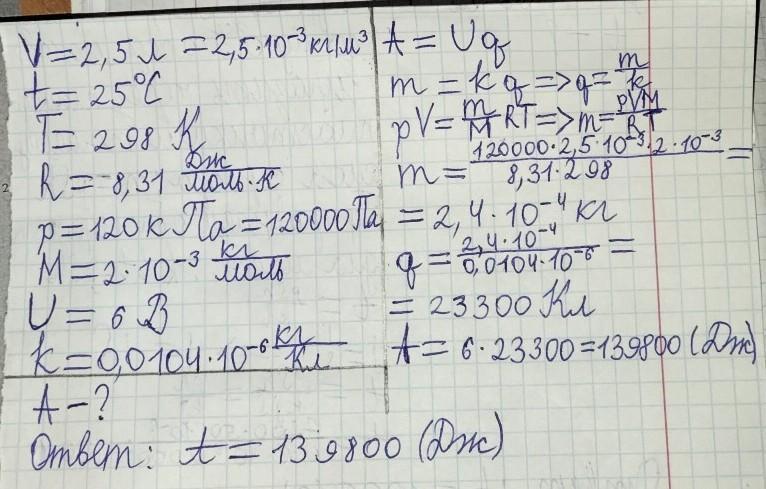 V = 2,5 л = 2,5·10⁻³ кг/м³
t = 25°C
T = 298 К
R = 8,31 Дж/моль·К
p = 120 кПа = 120000 Па
M = 2·10⁻³ кг/моль
U = 6 В
k = 0,0104·10⁻⁶ кг/Кл
A - ?
A = Uq
m = kq => q = m/k
pV = m/M RT => m = pVM/RT
m = 120000·2,5·10⁻³·2·10⁻³/8,31·298 =
= 2,4·10⁻⁴ кг
q = 2,4·10⁻⁴/0,0104·10⁻⁶ =
= 23300 Кл
A = 6·23300 = 139800 (Дж)
Ответ: A = 139800 (Дж)